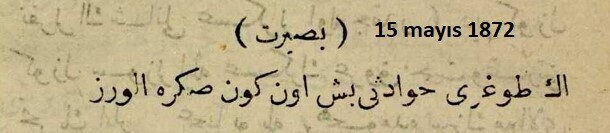 ( بصیرت ) 15 mayıs 1872
اڭ طوغری حوادثی بش اون کون صکره الورز